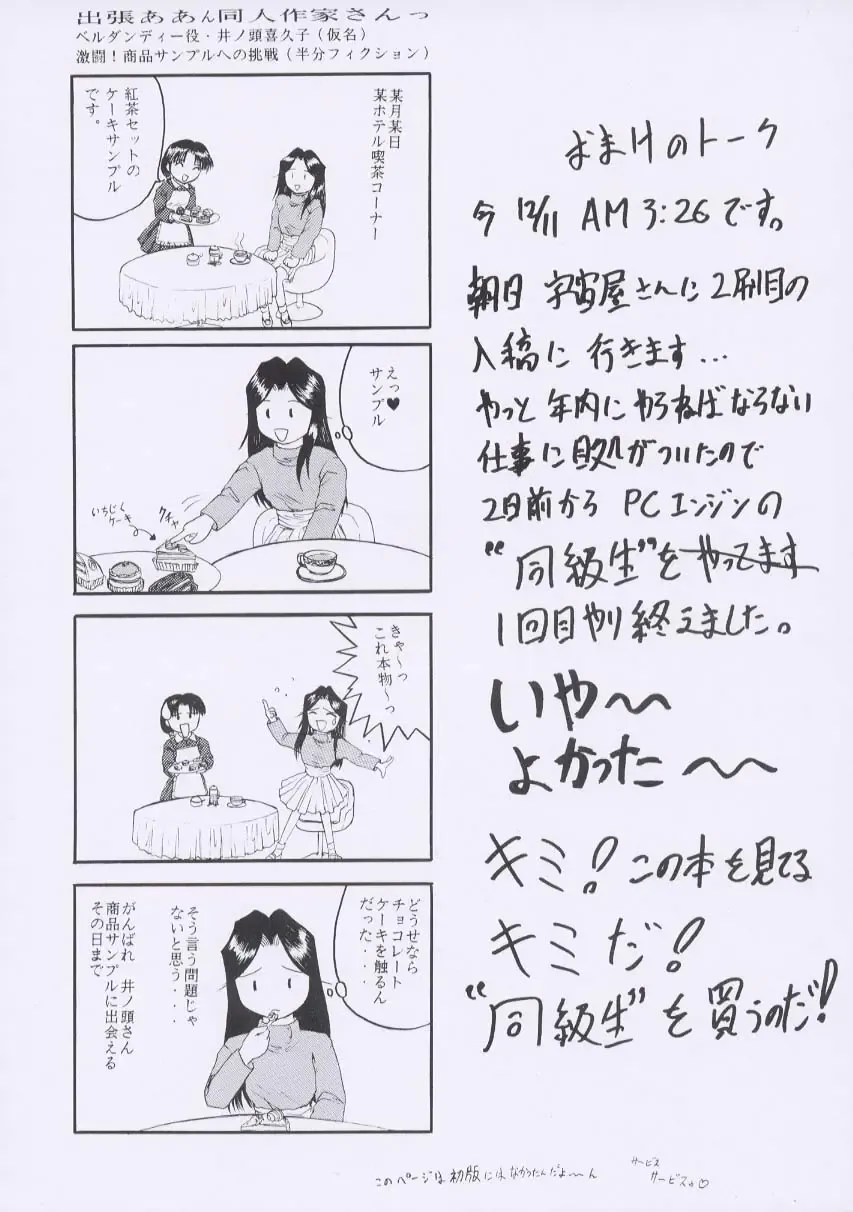 出張ああん同人作家さんっ
ベルダンディー役・井ノ頭喜久子(仮名)
激闘!商品サンプルへの挑戦(半分フィクション)
某月某日
某ホテル喫茶コーナー
紅茶セットの
ケーキサンプル
です。
えっ♥
サンプル
いちじく
ケーキ
クチャ
きゃ〜っ
これ本物〜っ
どうせなら
チョコレート
ケーキを触るん
だった・・・
そう言う問題じゃ
ないと思う・・・・
がんばれ 井ノ頭さん
商品サンプルに出会える
その日まで
おまけのトーク
今 12/11 AM 3:26です。
朝日 宇宙屋さんに2刷目の
入稿に 行きます...
やっと 年内に やらねばならない
仕事に目処がついたので
2日前から PCエンジンの
“同級生”をやってます
1回目やり終えました。
いや〜〜
よかった〜〜
キミ!この本を見てる
キミだ!
“同級生”を買うのだ!
このページは初版にはなかったんだよ〜〜ん
サービス
サービスぅ♡